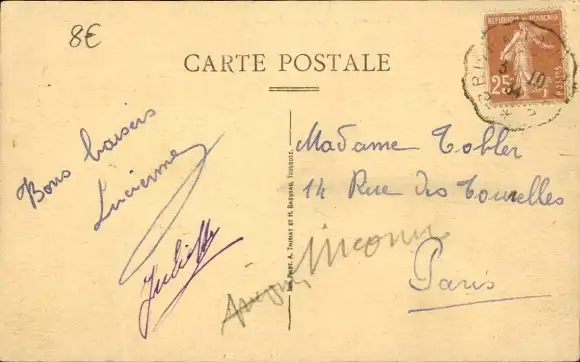 8€
CARTE POSTALE
REPUBLIQUE FRANÇAISE
25
POSTES
10
34
Bons baisers
Lucienne
Juliette
Madame Tobler
14 Rue des Tourelles
Paris
inconnu
A. THIRIAT ET H. BASUYAU, TOULOUSE